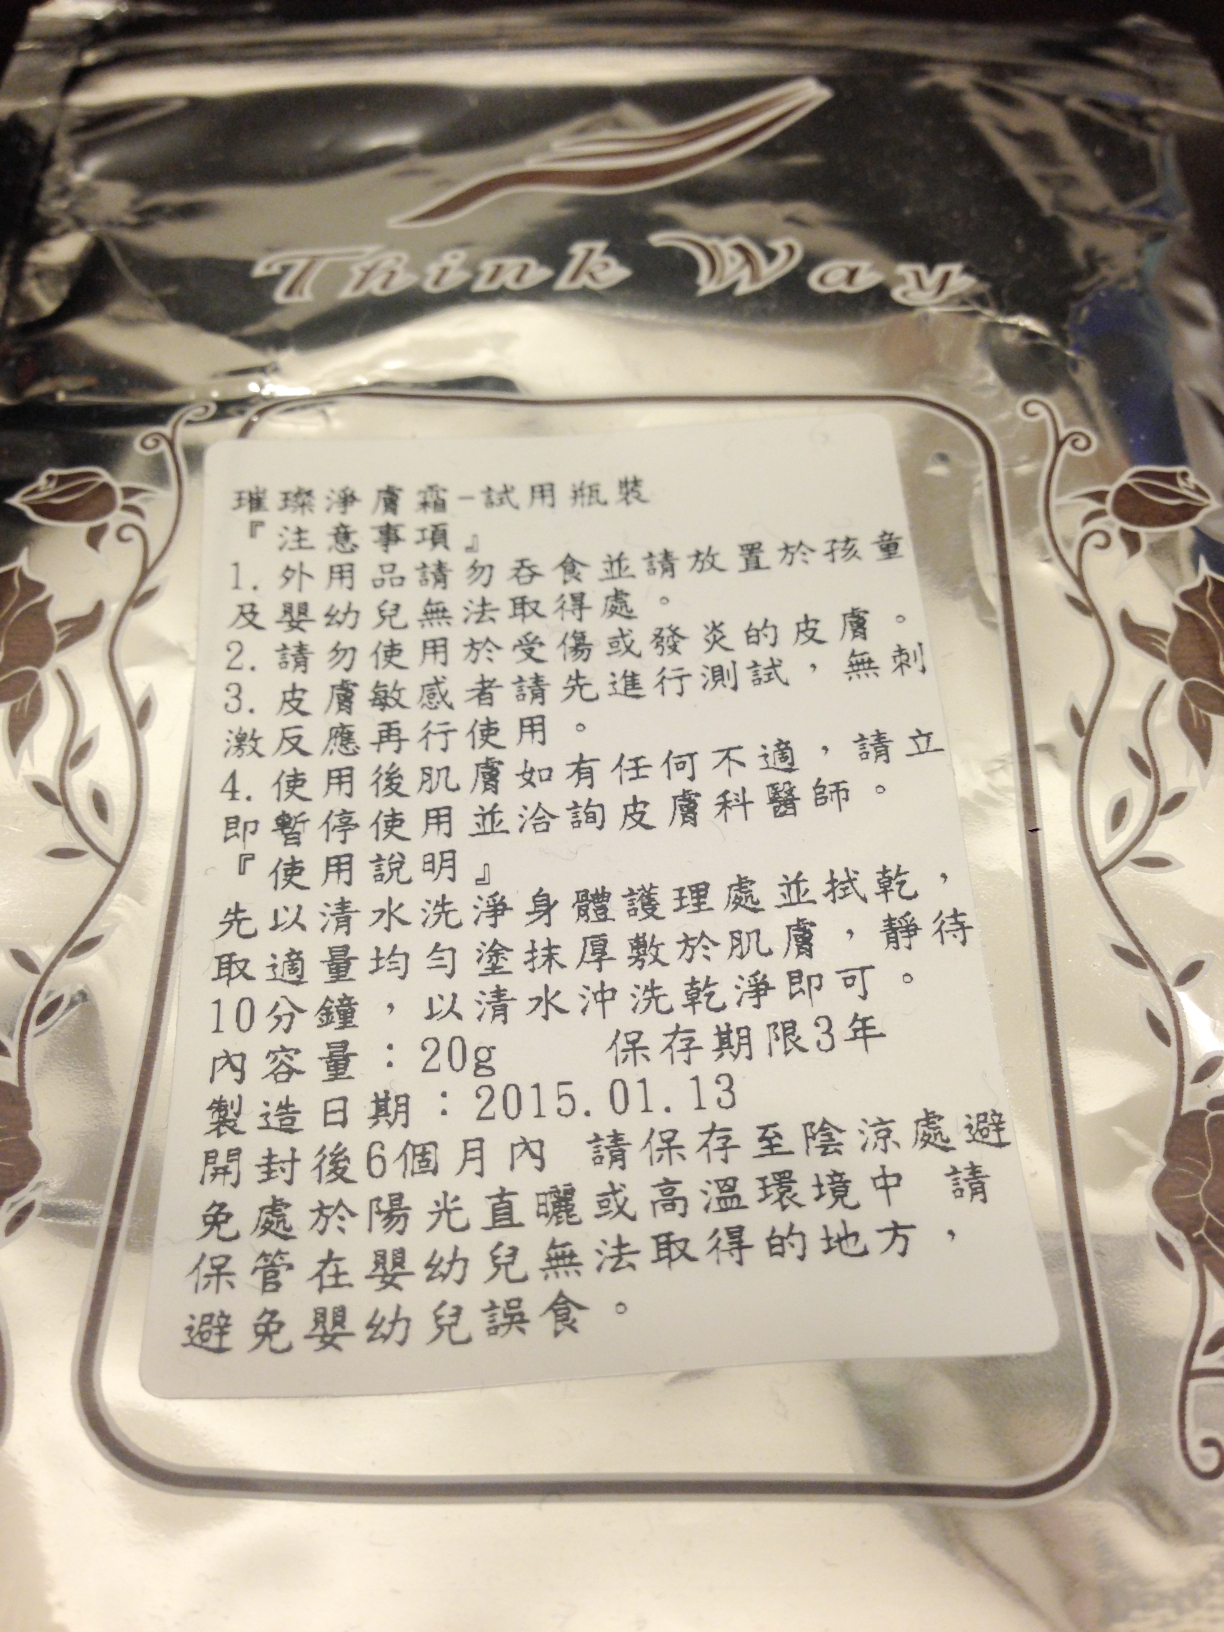 Think Way
璀璨淨膚霜-試用瓶裝
『注意事項』
1.外用品請勿吞食並請放置於孩童
及嬰幼兒無法取得處。
2.請勿使用於受傷或發炎的皮膚。
3.皮膚敏感者請先進行測試，無刺
激反應再行使用。
4.使用後肌膚如有任何不適，請立
即暫停使用並洽詢皮膚科醫師。
『使用說明』
先以清水洗淨身體護理處並拭乾，
取適量均勻塗抹厚敷於肌膚，靜待
10分鐘，以清水沖洗乾淨即可。
內容量：20g 保存期限3年
製造日期：2015.01.13
開封後6個月內 請保存至陰涼處避
免處於陽光直曬或高溫環境中 請
保管在嬰幼兒無法取得的地方，
避免嬰幼兒誤食。